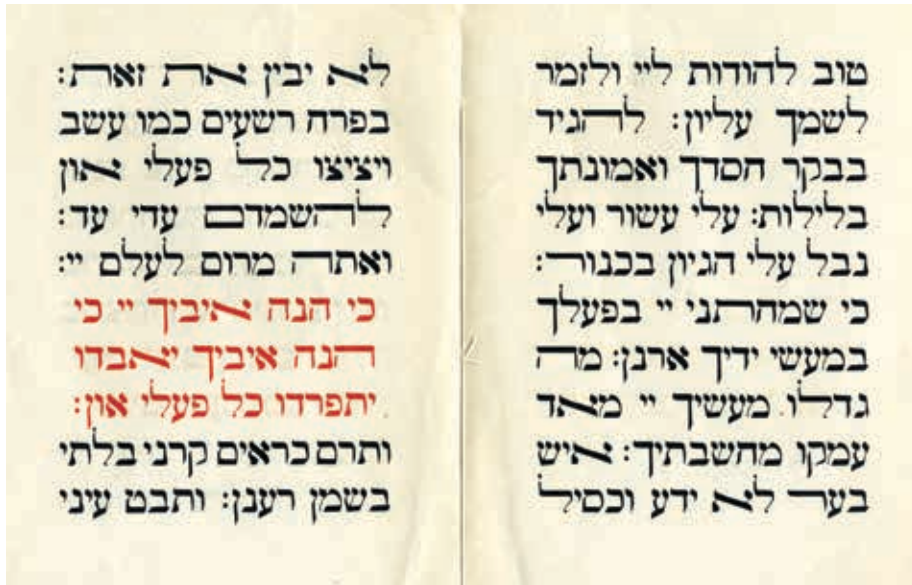 טוב להודות ליי ולזמר
לשמך עליון: להגיד
בבקר חסדך ואמונתך
בלילות: עלי עשור ועלי
נבל עלי הגיון בכנור:
כי שמחתני יי בפעלך
במעשי ידיך ארנן: מה
גדלו מעשיך יי מאד
עמקו מחשבתיך: איש
בער לא ידע וכסיל
לא יבין את זאת:
בפרח רשעים כמו עשב
ויציצו כל פעלי און
להשמדם עדי עד:
ואתה מרום לעלם יי:
כי הנה איביך יי כי
הנה איביך יאבדו
יתפרדו כל פעלי און:
ותרם כראים קרני בלתי
בשמן רענן: ותבט עיני